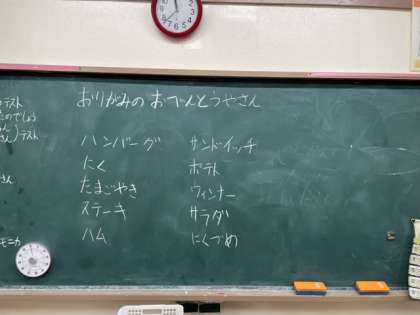 おりがみの おべんとうやさん
ハンバーグ
にく
たまごやき
ステーキ
ハム
サンドイッチ
ポテト
ウィンナー
サラダ
にくづめ
テスト
たのでしょう
テスト
さん
モニカ